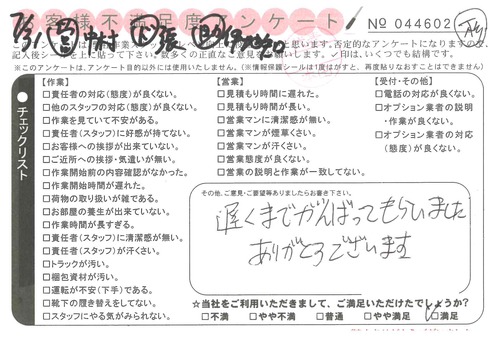 お客様不満足度アンケート
No 044602
7/31 中村
※このアンケートは、アンケート目的以外には使用いたしません。(※情報保護シールは1度はがすと、再度貼りなおすことはできません)
チェックリスト
【作業】
□責任者の対応(態度)が良くない。
□他のスタッフの対応(態度)が良くない。
□作業を見ていて不安がある。
□責任者(スタッフ)に好感が持てない。
□お客様への挨拶が出来ていない。
□ご近所への挨拶・気遣いが無い。
□作業開始前の内容確認がなかった。
□作業開始時間が遅れた。
□荷物の取り扱いが雑である。
□お部屋の養生が出来ていない。
□作業時間が長すぎる。
□責任者(スタッフ)に清潔感が無い。
□責任者(スタッフ)が汗くさい。
□トラックが汚い。
□梱包資材が汚い。
□運転が不安(下手)である。
□靴下の履き替えをしてない。
□スタッフにやる気がみられない。
【営業】
□見積もり時間に遅れた。
□見積もり時間が長い。
□営業マンに清潔感が無い。
□営業マンが煙草くさい。
□営業マンが汗くさい。
□営業態度が良くない。
□営業の説明と作業が一致してない。
【受付・その他】
□電話の対応が良くない。
□オプション業者の説明
・作業が良くない。
□オプション業者の対応
(態度)が良くない。
その他、ご意見・ご要望等ありましたらお書き下さい。
遅くまでがんばってもらいました
ありがとうございます
☆当社をご利用いただきまして、ご満足いただけたでしょうか?
□不満 □やや不満 □普通 □やや満足 ☑満足